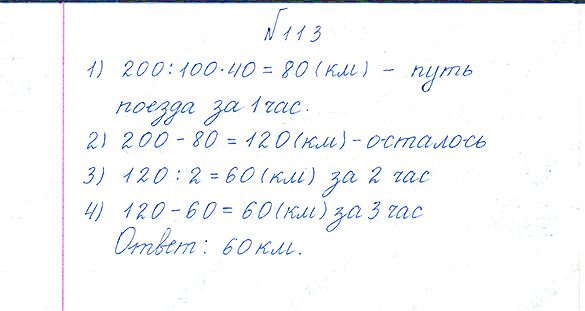 №113
1) 200:100·40=80(км) – путь
поезда за 1 час.
2) 200-80=120(км)-осталось
3) 120:2=60(км) за 2 час
4) 120-60=60(км) за 3 час
Ответ: 60 км.